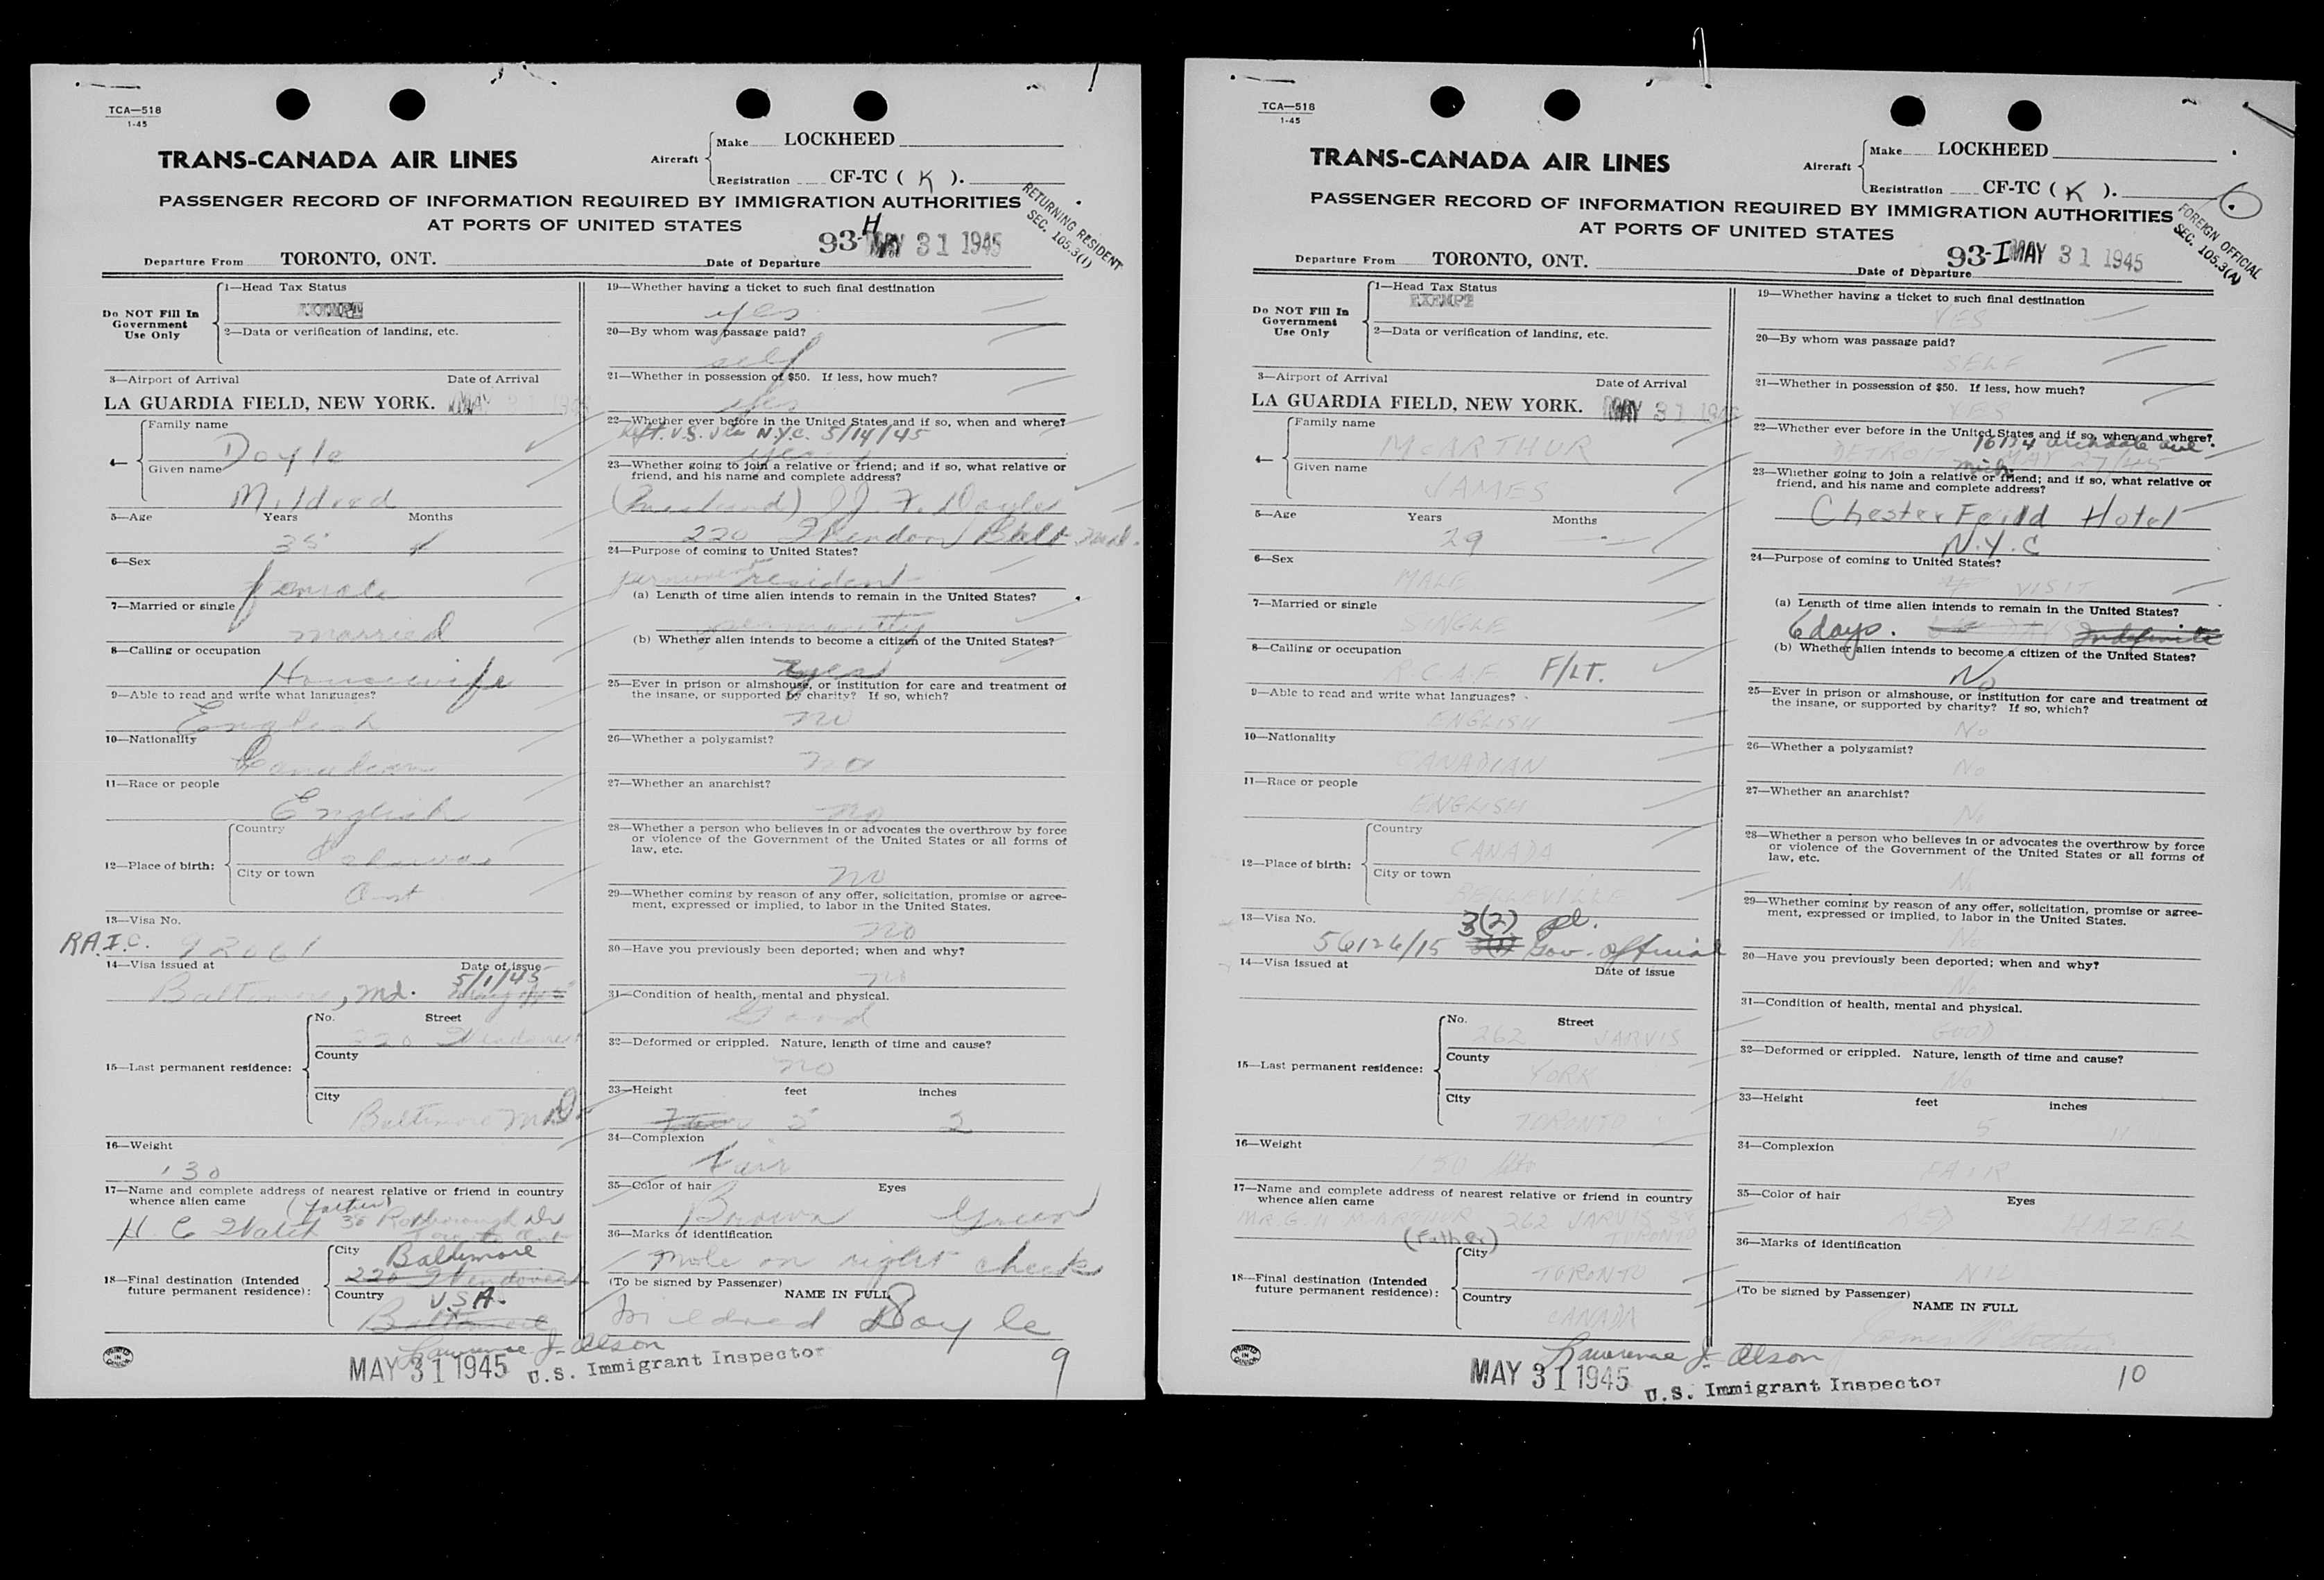 TCA—518
1-45
TRANS-CANADA AIR LINES
Aircraft
Make LOCKHEED
Registration CF-TC ( K ).
PASSENGER RECORD OF INFORMATION REQUIRED BY IMMIGRATION AUTHORITIES
AT PORTS OF UNITED STATES
RETURNING RESIDENT
SEC. 105.3(1)
93-H MAY 31 1945
Departure From TORONTO, ONT. Date of Departure
Do NOT Fill In
Government
Use Only
1—Head Tax Status
EXEMPT
2—Data or verification of landing, etc.
3—Airport of Arrival Date of Arrival
LA GUARDIA FIELD, NEW YORK. MAY 31 1945
4—
Family name
Doyle
Given name
Mildred
5—Age Years Months
35
6—Sex
female
7—Married or single
married
8—Calling or occupation
Housewife
9—Able to read and write what languages?
English
10—Nationality
Canadian
11—Race or people
English
12—Place of birth:
Country
Oshawa
City or town
Ont
13—Visa No.
R.A.I.C. 92061
14—Visa issued at Date of issue
Baltimore, Md. 5/1/45
15—Last permanent residence:
No. Street
220
County
City
Baltimore Md
16—Weight
130
17—Name and complete address of nearest relative or friend in country
whence alien came
(father)
H. C. Walsh 30 Roxborough Dr
Toronto Ont
18—Final destination (Intended
future permanent residence):
City
Baltimore
220
Country
U.S.A.
Baltimore
19—Whether having a ticket to such final destination
yes
20—By whom was passage paid?
self
21—Whether in possession of $50. If less, how much?
yes
22—Whether ever before in the United States and if so, when and where?
Left. U.S. via N.Y.C. 5/14/45
yes
23—Whether going to join a relative or friend; and if so, what relative or
friend, and his name and complete address?
(husband) J. F. Doyle
220 Balt Md.
24—Purpose of coming to United States?
permanent resident
(a) Length of time alien intends to remain in the United States?
permanently
(b) Whether alien intends to become a citizen of the United States?
yes
25—Ever in prison or almshouse, or institution for care and treatment of
the insane, or supported by charity? If so, which?
no
26—Whether a polygamist?
no
27—Whether an anarchist?
no
28—Whether a person who believes in or advocates the overthrow by force
or violence of the Government of the United States or all forms of
law, etc.
no
29—Whether coming by reason of any offer, solicitation, promise or agree-
ment, expressed or implied, to labor in the United States.
no
30—Have you previously been deported; when and why?
no
31—Condition of health, mental and physical.
Good
32—Deformed or crippled. Nature, length of time and cause?
no
33—Height feet inches
5 2
34—Complexion
Fair
35—Color of hair Eyes
Brown Green
36—Marks of identification
mole on right cheek
(To be signed by Passenger)
NAME IN FULL
Mildred Doyle
PRINTED IN CANADA
Lawrence J. Olson
MAY 31 1945 U.S. Immigrant Inspector
9
TCA—518
1-45
TRANS-CANADA AIR LINES
Aircraft
Make LOCKHEED
Registration CF-TC ( K ).
PASSENGER RECORD OF INFORMATION REQUIRED BY IMMIGRATION AUTHORITIES
AT PORTS OF UNITED STATES
FOREIGN OFFICIAL
SEC. 105.3(A)
93-I MAY 31 1945
Departure From TORONTO, ONT. Date of Departure
Do NOT Fill In
Government
Use Only
1—Head Tax Status
EXEMPT
2—Data or verification of landing, etc.
3—Airport of Arrival Date of Arrival
LA GUARDIA FIELD, NEW YORK. MAY 31 1945
4—
Family name
McARTHUR
Given name
JAMES
5—Age Years Months
29 —
6—Sex
MALE
7—Married or single
SINGLE
8—Calling or occupation
R.C.A.F. F/LT.
9—Able to read and write what languages?
ENGLISH
10—Nationality
CANADIAN
11—Race or people
ENGLISH
12—Place of birth:
Country
CANADA
City or town
BELLEVILLE
13—Visa No.
3(2) pl.
56126/15 Gov. Official
14—Visa issued at Date of issue
15—Last permanent residence:
No. Street
262 JARVIS
County
YORK
City
TORONTO
16—Weight
150 lbs
17—Name and complete address of nearest relative or friend in country
whence alien came
MR. G. H McARTHUR 262 JARVIS ST
TORONTO
(Father)
18—Final destination (Intended
future permanent residence):
City
TORONTO
Country
CANADA
19—Whether having a ticket to such final destination
YES
20—By whom was passage paid?
SELF
21—Whether in possession of $50. If less, how much?
YES
22—Whether ever before in the United States and if so, when and where?
16154 ave.
DETROIT Mich MAY 27/45
23—Whether going to join a relative or friend; and if so, what relative or
friend, and his name and complete address?
Chester Feild Hotel
N.Y.C
24—Purpose of coming to United States?
VISIT
(a) Length of time alien intends to remain in the United States?
6 days. DAYS Indefinite
(b) Whether alien intends to become a citizen of the United States?
No
25—Ever in prison or almshouse, or institution for care and treatment of
the insane, or supported by charity? If so, which?
No
26—Whether a polygamist?
No
27—Whether an anarchist?
No
28—Whether a person who believes in or advocates the overthrow by force
or violence of the Government of the United States or all forms of
law, etc.
No
29—Whether coming by reason of any offer, solicitation, promise or agree-
ment, expressed or implied, to labor in the United States.
No
30—Have you previously been deported; when and why?
No
31—Condition of health, mental and physical.
GOOD
32—Deformed or crippled. Nature, length of time and cause?
No
33—Height feet inches
5 11
34—Complexion
FAIR
35—Color of hair Eyes
RED HAZEL
36—Marks of identification
NIL
(To be signed by Passenger)
NAME IN FULL
James McArthur
PRINTED IN CANADA
Lawrence J. Olson
MAY 31 1945 U.S. Immigrant Inspector
10